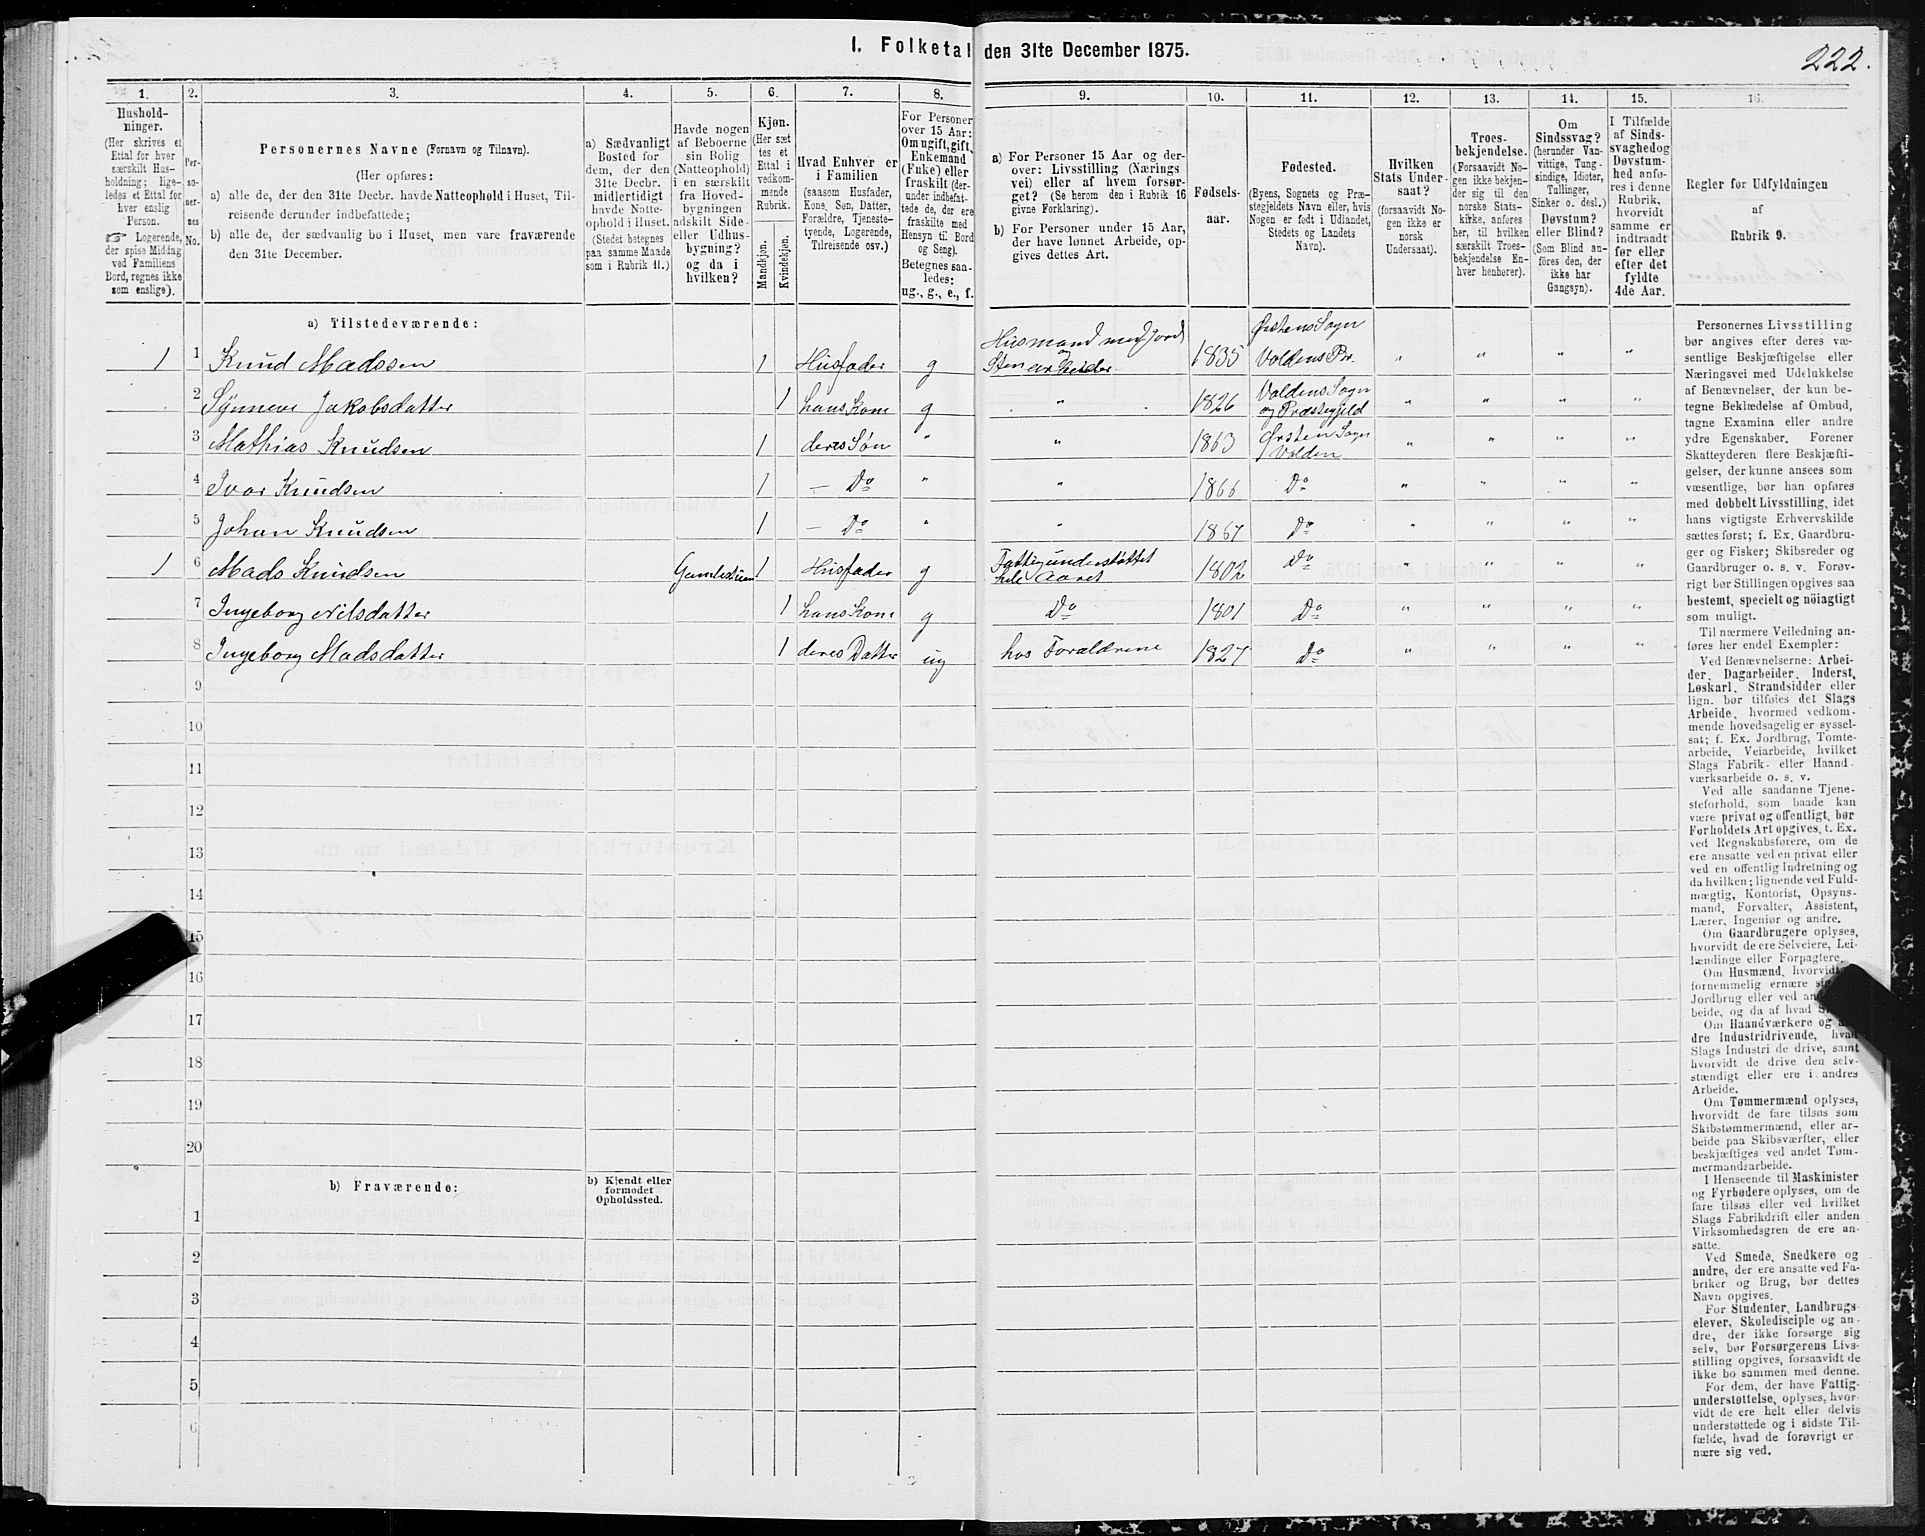 I. Folketal den 31te December 1875.
222.
1.
Hushold-
ninger.
(Her skrives et
Ettal for hver
særskilt Hus-
holdning; lige-
ledes et Ettal for
hver enslig
Person.
☞ Logerende,
der spise Middag
ved Familiens
Bord, regnes ikke
som enslige).
2.
Per-
so-
ner-
nes
No.
3.
Personernes Navne (Fornavn og Tilnavn).
(Her opføres:
a) alle de, der den 31te Decbr. havde Natteophold i Huset, Til-
reisende derunder indbefattede;
b) alle de, der sædvanlig bo i Huset, men vare fraværende
den 31te December.
4.
a) Sædvanligt
Bosted for
dem, der den
31te Decbr.
midlertidigt
havde Natte-
ophold i Huset.
(Stedet betegnes
paa samme Maade
som i Rubrik 11.)
5.
Havde nogen
af Beboerne
sin Bolig
(Natteophold)
i en særskilt
fra Hoved-
bygningen
adskilt Side-
eller Udhus-
bygning?
og da i
hvilken?
6.
Kjøn.
(Her sæt-
tes et
Ettal i
vedkom-
mende
Rubrik.
Mandkjøn.
Kvindekjøn.
7.
Hvad Enhver er
i Familien
(saasom Husfader,
Kone, Søn, Datter,
Forældre, Tjeneste-
tyende, Logerende,
Tilreisende osv.)
8.
For Personer
over 15 Aar:
Om ugift, gift,
Enkemand
(Enke) eller
fraskilt (der-
under indbefat-
tede de, der ere
fraskilte med
Hensyn til Bord
og Seng).
Betegnes saa-
ledes:
ug., g., e., f.
9.
a) For Personer 15 Aar og der-
over: Livsstilling (Nærings-
vei) eller af hvem forsør-
get? (Se herom den i Rubrik 16
givne Forklaring).
b) For Personer under 15 Aar,
der have lønnet Arbeide, op-
gives dettes Art.
10.
Fødsels-
aar.
11.
Fødested.
(Byens, Sognets og Præ-
stegjeldets Navn eller, hvis
Nogen er født i Udlandet,
Stedets og Landets
Navn).
12.
Hvilken
Stats Under-
saat?
(forsaavidt No-
gen ikke er
norsk
Undersaat).
13.
Troes-
bekjendelse.
(Forsaavidt No-
gen ikke bekjen-
der sig til den
norske Stats-
kirke, anføres
her, til hvilken
særskilt Troes-
bekjendelse En-
hver henhører).
14.
Om
Sindssvag?
(herunder Van-
vittige, Tung-
sindige, Idioter,
Tullinger,
Sinker o. desl.)
Døvstum?
eller Blind?
(Som Blind an-
föres den, der
ikke har
Gangsyn).
15.
I Tilfælde
af Sinds-
svaghed og
Døvstum-
hed anfø-
res i denne
Rubrik,
hvorvidt
samme er
indtraadt
før eller
efter det
fyldte
4de Aar.
16.
Regler før Udfyldningen
af
Rubrik 9.
a) Tilstedeværende:
1 1 Knud Madssen 1 Husfader g Husmand med Jord og Stenarbeider 1835 Ørstens Sogn Voldens Pr. " " " "
2 Synneve Jakobsdatter 1 hans Kone g " 1826 Voldens Sogn og Præstegjeld " " " "
3 Mathias Knudsen 1 deres Søn " " 1863 Ørsten Sogn Volden " " " "
4 Ivar Knudsen 1 — Do " " 1866 Do " " " "
5 Johan Knudsen 1 — Do " " 1867 Do " " " "
1 6 Mads Knudsen 1 Husfader g Fattigunderstøttet hele Aaret 1802 Do " " " "
7 Ingeborg Nilsdatter 1 hans Kone g Do 1801 Do " " " "
8 Ingeborg Madsdatter 1 deres Datter ug hos Forældrene 1827 Do " " " "
9
10
11
12
13
14
15
16
17
18
19
20
b) Fraværende:
b) Kjendt eller
formodet
Opholdssted.
1
2
3
4
5
6
Personernes Livsstilling
bør angives efter deres væ-
sentlige Beskjæftigelse eller
Næringsvei med Udelukkelse
af Benævnelser, der kun be-
tegne Beklædelse af Ombud,
tagne Examina eller andre
ydre Egenskaber. Forener
Skatteyderen flere Beskjæfti-
gelser, der kunne ansees som
væsentlige, bør han opføres
med dobbelt Livsstilling, idet
hans vigtigste Erhvervskilde
sættes først; f. Ex. Gaardbru-
ger og Fisker; Skibsreder og
Gaardbruger o. s. v. Forøv-
rigt bør Stillingen opgives saa
bestemt, specielt og nöiagtigt
som muligt.
Til nærmere Veiledning an-
føres her endel Exempler:
Ved Benævnelserne: Arbei-
der, Dagarbeider, Inderst,
Løskarl, Strandsidder eller
lign. bør tilføies det Slags
Arbeide, hvormed vedkom-
mende hovedsagelig er syssel-
sat; f. Ex. Jordbrug, Tomte-
arbeide, Veiarbeide, hvilket
Slags Fabrik- eller Haand-
værksarbeide o. s. v.
Ved alle saadanne Tjene-
steforhold, som baade kan
være privat og offentligt, bør
Forholdets Art opgives, t. Ex.
ved Regnskabsførere, om de
ere ansatte ved en privat eller
ved en offentlig Indretning og
da hvilken; lignende ved Fuld-
mægtig, Kontorist, Opsyns-
mand, Forvalter, Assistent,
Lærer, Ingeniør og andre.
Om Gaardbrugere oplyses,
hvorvidt de ere Selveiere, Lei-
lændinge eller Forpagtere.
Om Husmænd, hvorvidt
fornemmelig ernære sig
Jordbrug eller ved
beide, og da af hvad
Om Haandværkere og
dre Industridrivende, hvad
Slags Industri de drive, samt
hvorvidt de drive den selv-
stændigt eller ere i andres
Arbeide.
Om Tømmermænd oplyses,
hvorvidt de fare tilsøs som
Skibstømmermænd, eller ar-
beide paa Skibsværfter, eller
beskjæftiges ved andet Tøm-
mermandsarbeide.
I Henseende til Maskinister
og Fyrbødere oplyses, om de
fare tilsøs eller ved hvilket
Slags Fabrikdrift eller anden
Virksomhedsgren de ere an-
satte.
Ved Smede, Snedkere og
andre, der ere ansatte ved Fa-
briker og Brug, bør dettes
Navn opgives.
For Studenter, Landbrugs-
elever, Skoledisciple og an-
dre, der ikke forsørge sig
selv, bør Forsørgerens Livs-
stilling opgives, forsaavidt de
ikke bo sammen med denne.
For dem, der have Fattig-
understøttelse, oplyses, hvor-
vidt de ere helt eller delvis
understøttede og i sidste Til-
fælde, hvad de forøvrigt er-
nære sig ved.